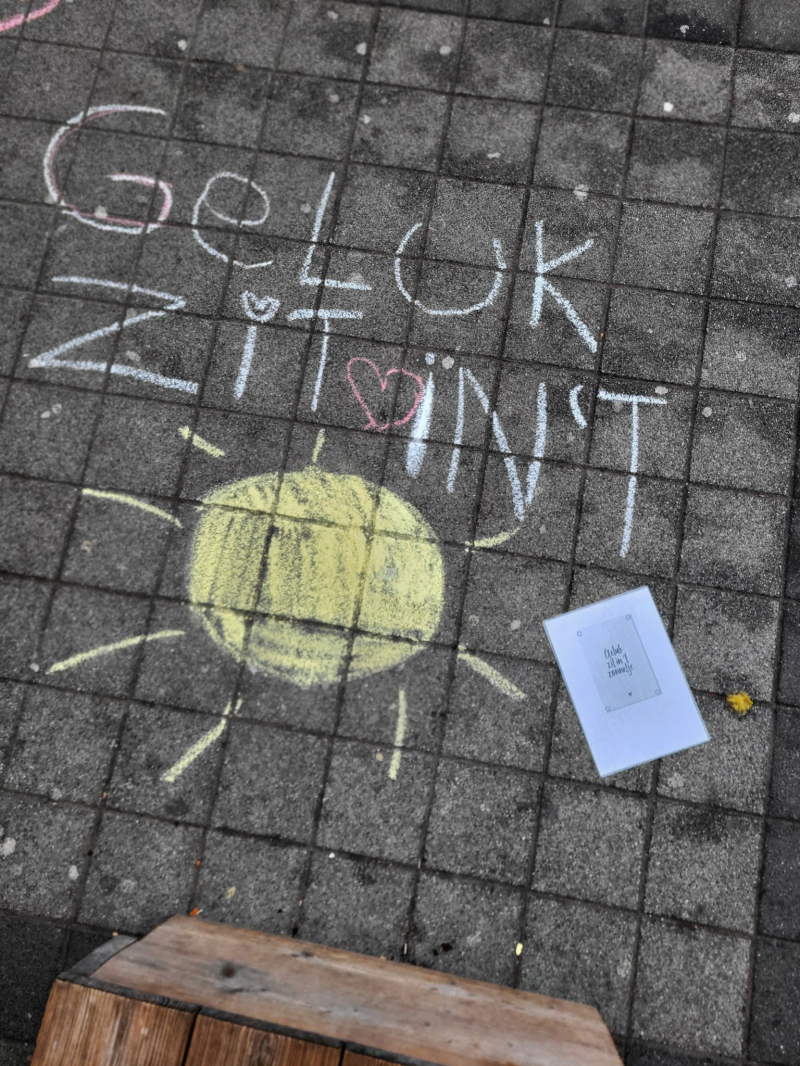 GeLUK
ZiT iN'T
Geluk
zit in 't
zonnetje